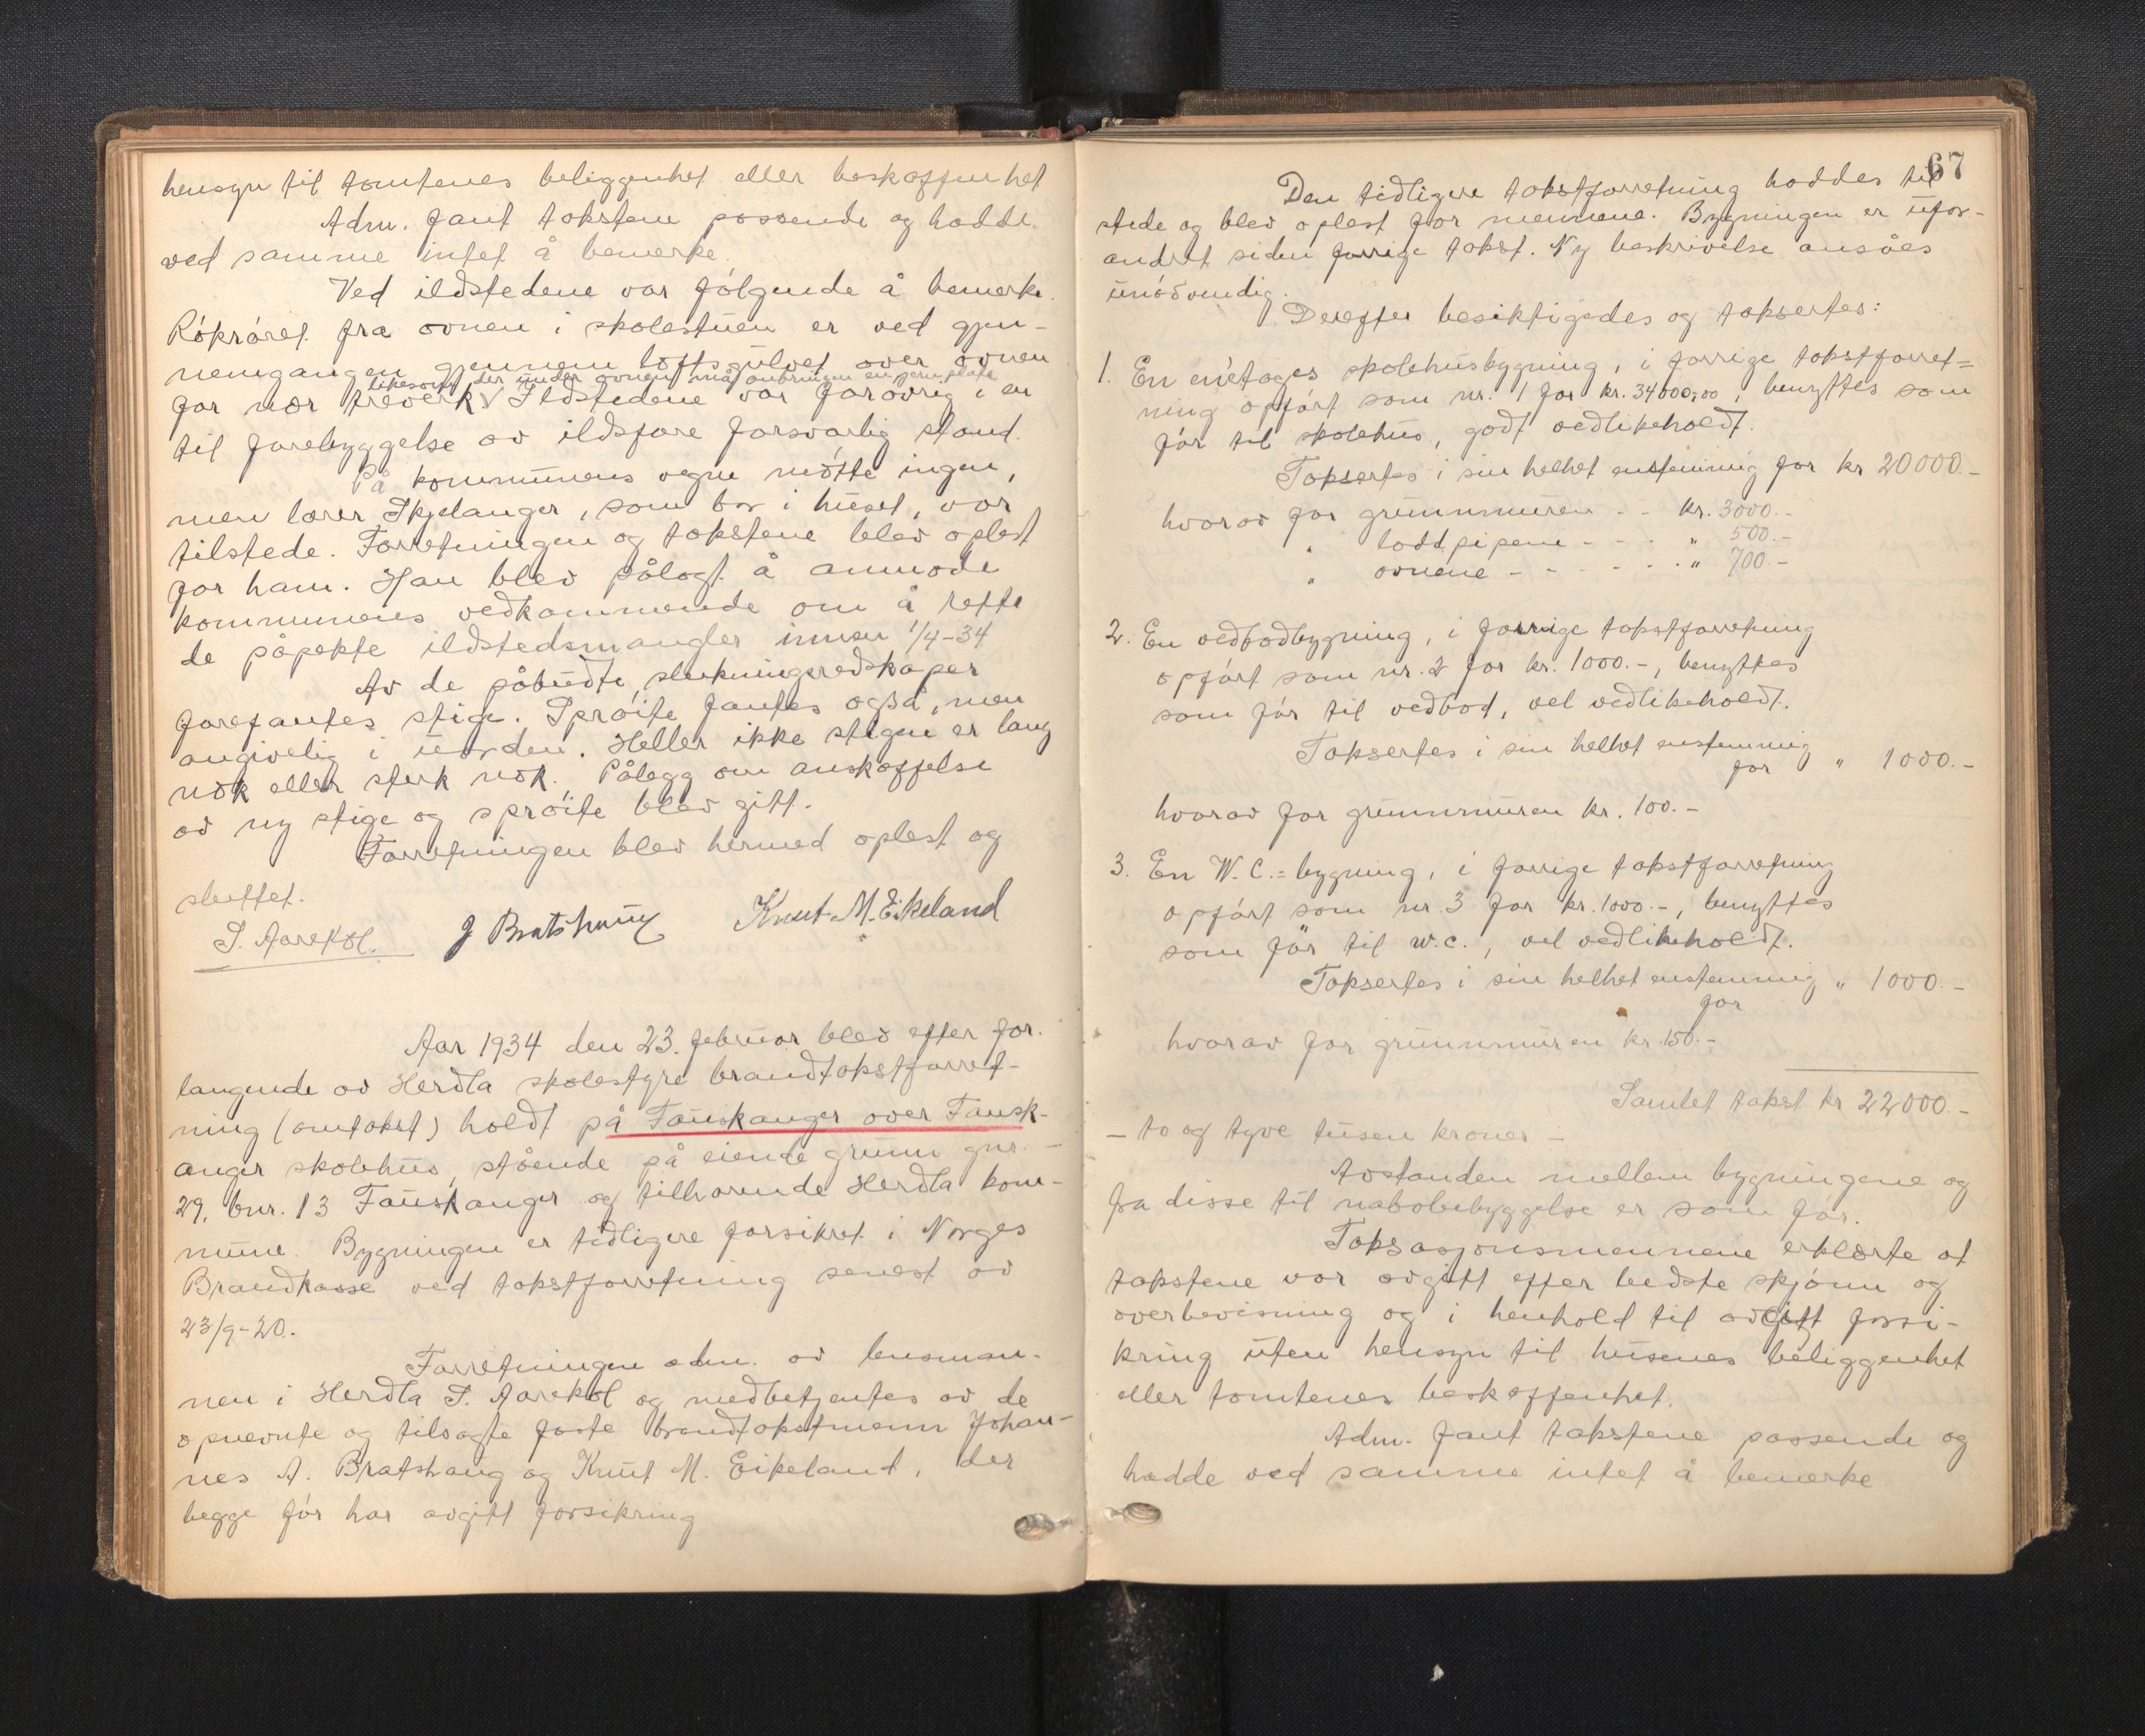 hensyn til tomtenes beliggenhet eller beskaffenhet
Adm. fant takstene passende og hadde
ved samme intet å bemerke.
Ved ildstedene var følgende å bemerke.
Rökröret fra ovnen i skolestuen er ved gjen-
nemgangen gjennem loftsgulvet over ovnen
likesom der under ovnen må anbringes en jernplate
for nær treverk. Ildstedene var forøvrig i en
til forebyggelse av ildsfare forsvarlig stand.
På kommunens vegne møtte ingen,
men lærer Skjelanger, som bor i huset, var
tilstede. Forretningen og takstene blev oplest
for ham. Han blev pålagt å anmode
kommunens vedkommende om å rette
de påpekte ildstedsmangler innen 1/4-34
Av de påbudte slukningsredskaper
forefantes stige. Sprøite fantes også, men
angivelig i uorden. Heller ikke stigen er lang
nok eller sterk nok. Pålegg om anskaffelse
av ny stige og sprøite blev gitt.
Forretningen blev hermed oplest og
sluttet.
T. Aarekol. J Bratshaug Knut M. Eikeland
Aar 1934 den 23. februar blev efter for-
langende av Herdla skolestyre brandtakstforret-
ning (omtakst) holdt på Fauskanger over Fausk-
anger skolehus, stående på eiende grunn gnr.
29, bnr. 13 Fauskanger og tilhørende Herdla kom-
mune. Bygningen er tidligere forsikret i Norges
Brandkasse ved takstforretning senest av
23/9-20.
Forretningen adm. av lensman-
nen i Herdla T. Aarekol og medbetjentes av de
opnevnte og tilsagte faste brandtakstmenn Johan-
nes A. Bratshaug og Knut M. Eikeland, der
begge før har avgitt forsikring
67
Den tidligere takstforretning haddes til
stede og blev oplest for mennene. Bygningen er ufor-
andret siden forrige takst. Ny beskrivelse ansåes
unödvendig.
Derefter besiktigedes og taksertes:
1. En enetages skolehusbygning, i forrige takstforret=
ning opfört som nr. 1 for kr. 34000,00, benyttes som
för til skolehus, godt vedlikeholdt.
Taksertes i sin helhet enstemmig for kr 20000.-
hvorav for grunnmuren - - kr. 3000.-
" loddpipene - - - " 500.-
" ovnene - - - - - - " 700.-
2. En vedbodbygning, i forrige takstforretning
opfört som nr. 2 for kr. 1000.-, benyttes
som för til vedbod, vel vedlikeholdt.
Taksertes i sin helhet enstemmig
for " 1000.-
hvorav for grunnmuren kr. 100.-
3. En W.C.=bygning, i forrige takstforretning
opfört som nr. 3 for kr. 1000.-, benyttes
som för til w.c., vel vedlikeholdt.
Taksertes i sin helhet enstemmig " 1000.-
for
hvorav for grunnmuren kr 150.-
Samlet takst kr 22000.-
- to og tyve tusen kroner -
Avstanden mellem bygningene og
fra disse til nabobebyggelse er som för.
Taksasjonsmennene erklærte at
takstene var avgitt efter bedste skjönn og
overbevisning og i henhold til avgitt forsi-
kring uten hensyn til husenes beliggenhet
eller tomtenes beskaffenhet.
Adm. fant takstene passende og
hadde ved samme intet å bemerke